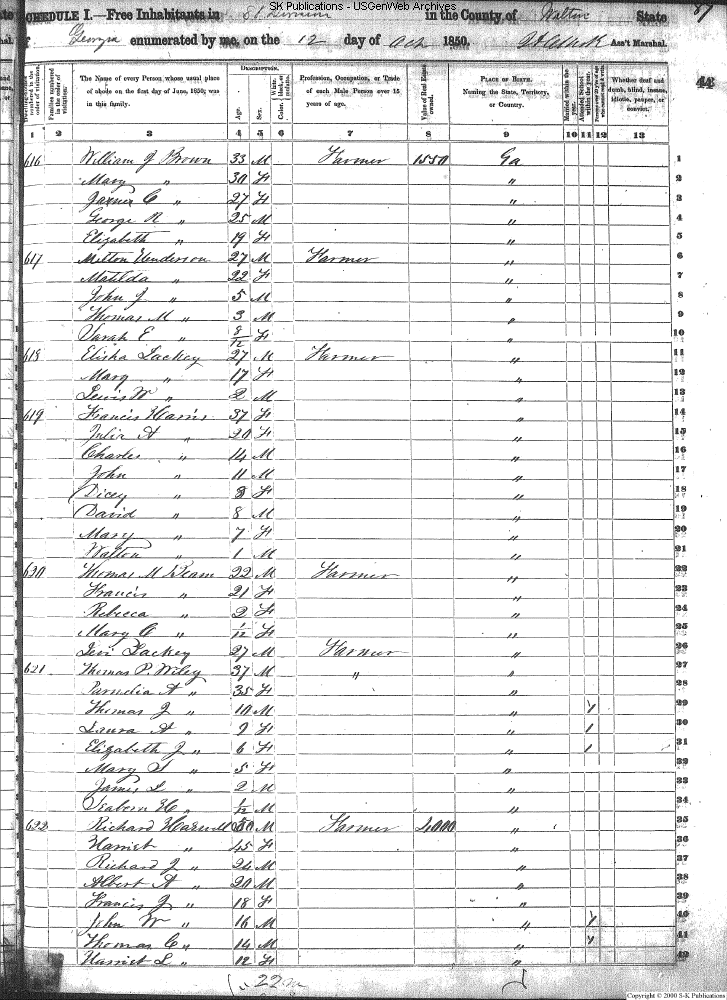 SK Publications - USGenWeb Archives
SCHEDULE I.—Free Inhabitants in in the County of Walton State
of Georgia enumerated by me, on the 12 day of Oct 1850. Ass't Marshal.
87
44
Dwelling-houses numbered in the order of visitation.
Families numbered in the order of visitation.
The Name of every Person whose usual place of abode on the first day of June, 1850, was in this family.
DESCRIPTION.
Age.
Sex.
White, black, or mulatto.
Color,
Profession, Occupation, or Trade of each Male Person over 15 years of age.
Value of Real Estate owned.
PLACE OF BIRTH.
Naming the State, Territory, or Country.
Married within the year.
Attended School within the year.
Whether deaf and dumb, blind, insane, idiotic, pauper, or convict.
1 2 3 4 5 6 7 8 9 10 11 12 13
616 William J Brown 33 M Farmer 1550 Ga 1
Mary " 30 F " 2
C " 27 F " 3
George R " 25 M " 4
Elizabeth " 19 F " 5
617 Milton Henderson 27 M Farmer " 6
Matilda " 22 F " 7
John J " 5 M " 8
Thomas M " 3 M " 9
Sarah E " 8/12 F " 10
618 Elisha Lackey 27 M Farmer " 11
Mary " 17 F " 12
Lewis W " 2 M " 13
619 Francis Harris 37 F " 14
Julia A " 20 F " 15
Charles " 14 M " 16
John " 11 M " 17
Dicey " F " 18
David " 8 M " 19
Mary " 7 F " 20
Walton " 1 M " 21
630 Thomas M 22 M Farmer " 22
Francis " 21 F " 23
Rebecca " 2 F " 24
Mary C " 1/12 F " 25
Levi Lackey 27 M Farmer " 26
621 Thomas P. Wiley 37 M " " 27
Parmelia A " 35 F " 28
Thomas J " 10 M " 1 29
Laura A " 9 F " 1 30
Elizabeth J " 6 F " 1 31
Mary S " 5 F " 32
James L " 2 M " 33
Seabern H " 1/12 M " 34
622 Richard Harwell 50 M Farmer 4000 " 35
Harriet " 45 F " 36
Richard J " 24 M " 37
Albert A " 20 M " 38
Francis J " 18 F " 39
John W " 16 M " 1 40
Thomas C " 14 M " 1 41
Harriet L " 12 F " 42
22 m
Copyright © 2000 S-K Publications